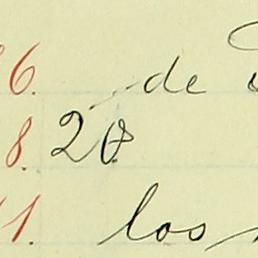 6. de
8. 20
11. los